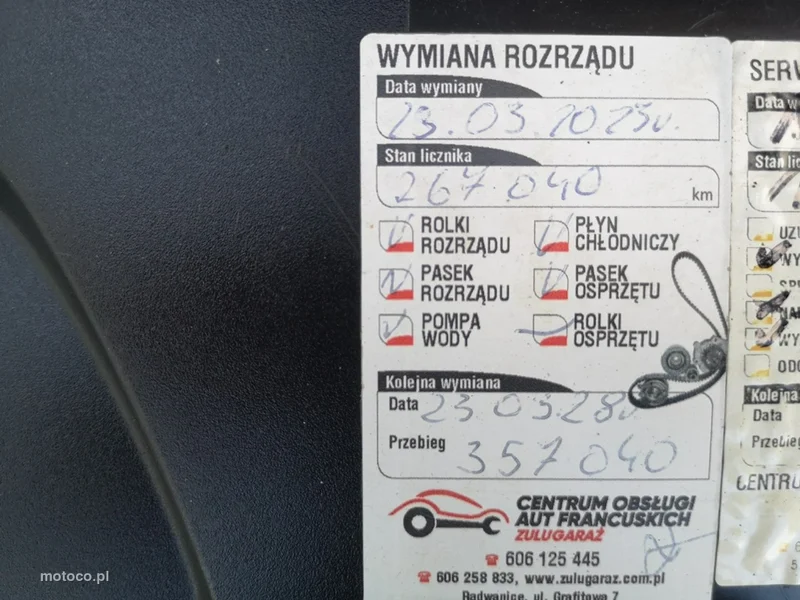 WYMIANA ROZRZĄDU
Data wymiany
23.03.2025r.
Stan licznika
267 040
km
ROLKI ROZRZĄDU
PŁYN CHŁODNICZY
PASEK ROZRZĄDU
PASEK OSPRZĘTU
POMPA WODY
ROLKI OSPRZĘTU
Kolejna wymiana
Data 23 03 28r
Przebieg 357 040
CENTRUM OBSŁUGI
AUT FRANCUSKICH
ZULUGARAŻ
606 125 445
606 258 833, www.zulugaraz.com.pl
Radwanice, ul. Grafitowa 7
SERW
Data w
Stan lic
UZU
WY
WY
ODC
Kolejna
Data
Przebieg
CENTRU
motoco.pl